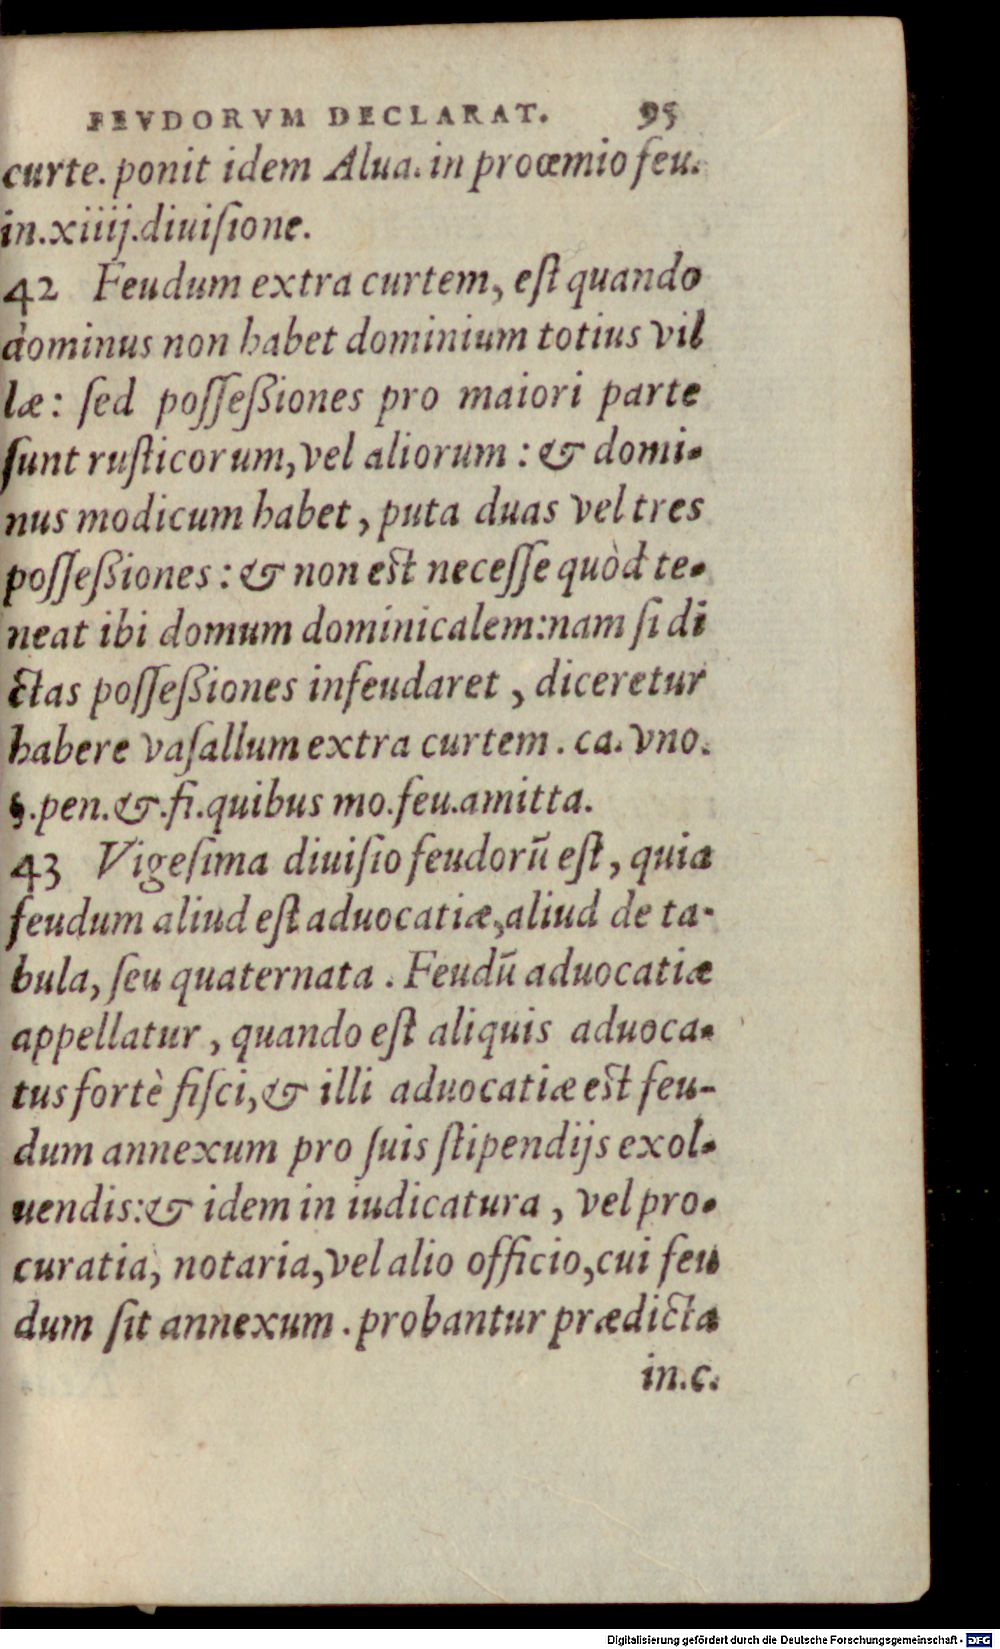 FEVDORVM DECLARAT. 95
curte. ponit idem Alua. in proœmio feu.
in.xiiij.diuiſione.
42 Feudum extra curtem, eſt quando
dominus non habet dominium totius vil
læ: ſed poſſeßiones pro maiori parte
ſunt ruſticorum, vel aliorum : & domi-
nus modicum habet, puta duas vel tres
poſſeßiones : & non eſt neceſſe quòd te-
neat ibi domum dominicalem:nam ſi di
ctas poſſeßiones infeudaret, diceretur
habere vaſallum extra curtem. ca. vno.
§.pen.&.fi.quibus mo.feu.amitta.
43 Vigeſima diuiſio feudorū eſt, quia
feudum aliud eſt aduocatiæ, aliud de ta-
bula, ſeu quaternata. Feudū aduocatiæ
appellatur, quando eſt aliquis aduoca-
tus fortè fiſci, & illi aduocatiæ eſt feu-
dum annexum pro ſuis ſtipendijs exol-
uendis:& idem in iudicatura, vel pro-
curatia, notaria, vel alio officio, cui feu
dum ſit annexum. probantur prædicta
in.c.
Digitalisierung gefördert durch die Deutsche Forschungsgemeinschaft - DFG